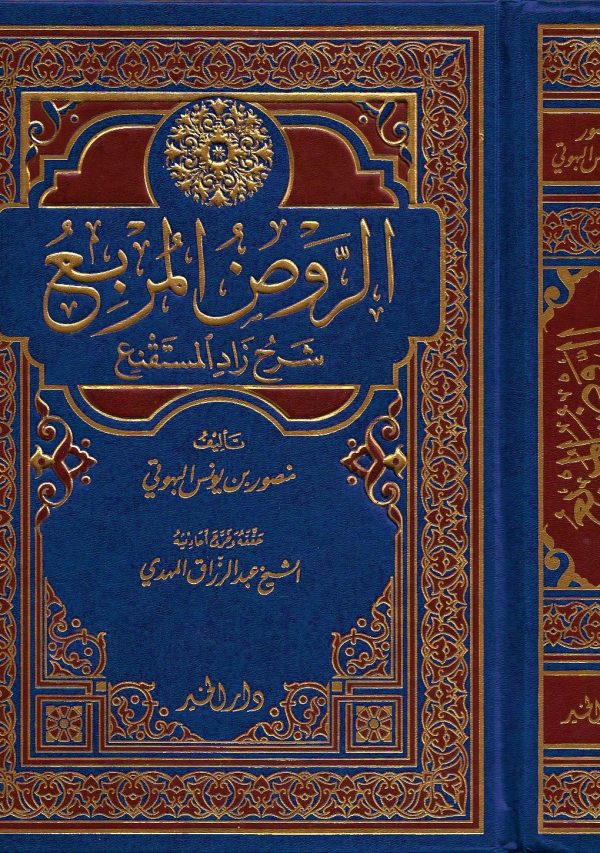 الرَّوضُ المُربِعُ
شَرحُ زَادِ المُستَقْنِع
تَأليفُ
منصور بن يونس البهوتي
حَقَّقَهُ وَخَرَّجَ أحَاديثَهُ
الشيخ عبد الرزّاق المهدي
دار الخير
الروض المربع